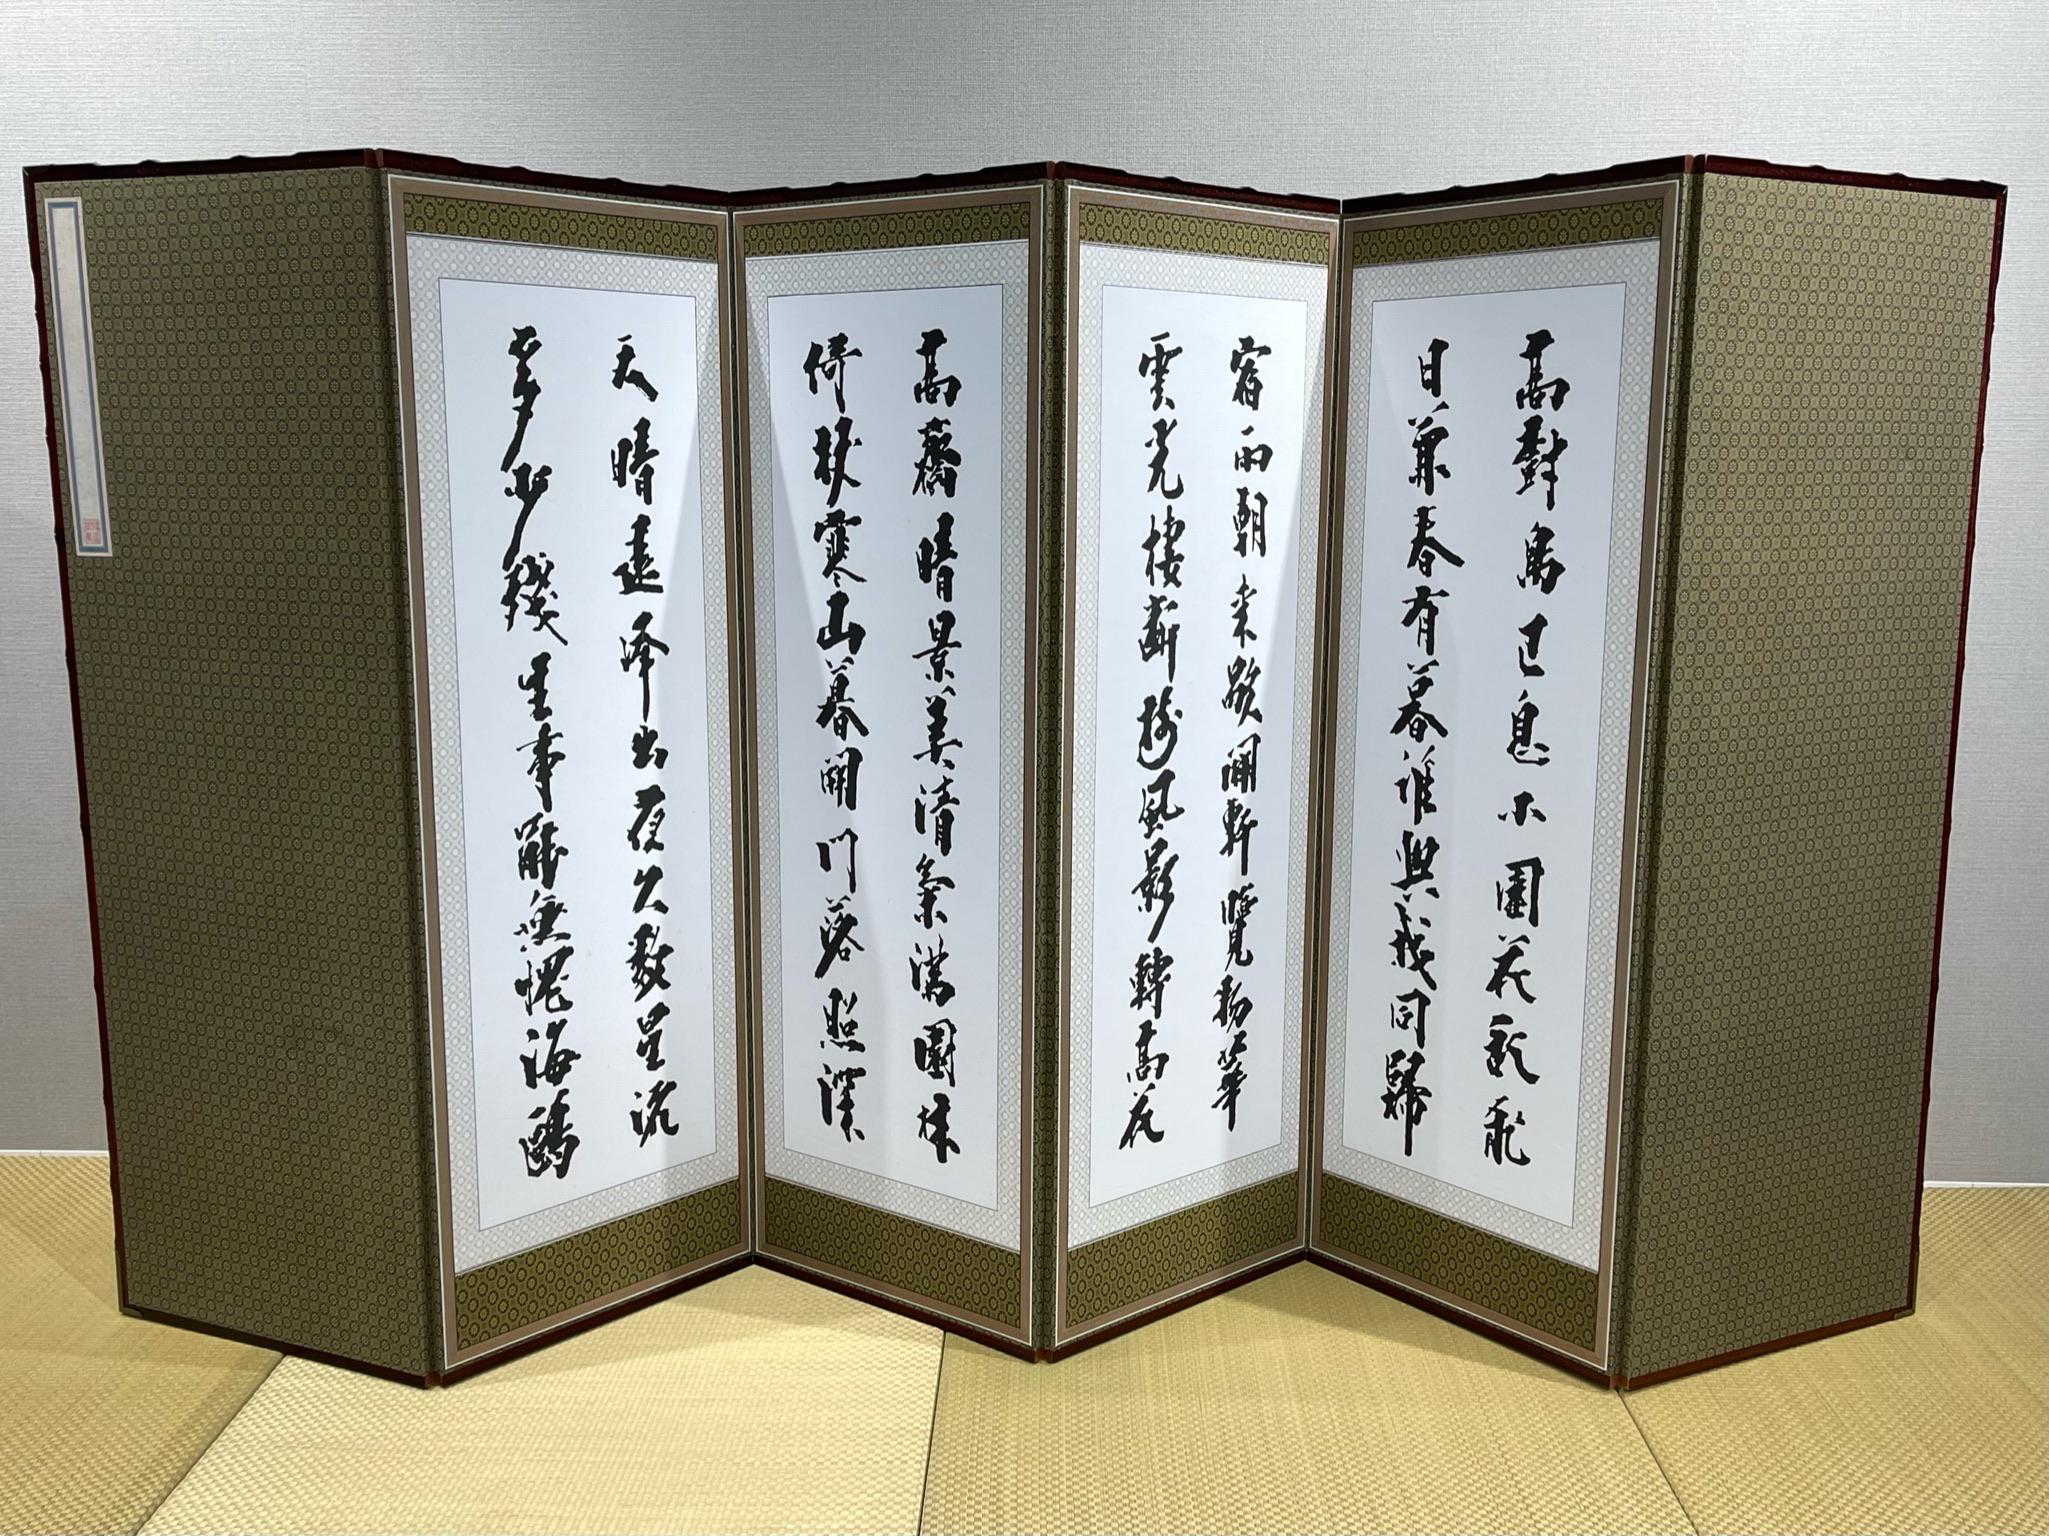 高樹鳥已息小園花亂飛
日兼春有暮誰與我同歸
宿雨朝来歇開軒覽物華
雲光棲断樹風影轉高花
高齋晴景美清氣滿園林
倚杖寒山暮開門落照深
天晴遠峰出夜久數星流
多少殘生事能無愧海鷗